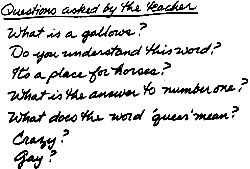 Questions asked by the teacher
What is a gallows?
Do you understand this word?
It's a place for horses?
What is the answer to number one?
What does the word 'queer' mean?
Crazy?
Gay?